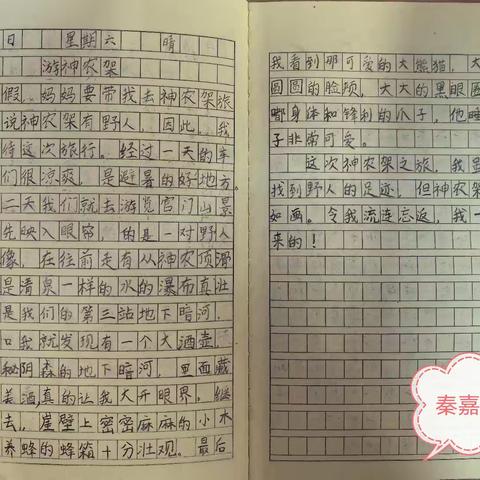 日 星期六 晴
游神农架
假,妈妈要带我去神农架旅
说神农架有野人,因此,我
待这次旅行。经过一天的车
们很凉爽,是避暑的好地方。
二天我们就去游览官门山景
先映入眼帘,的是一对野人
像,在往前走有从神农顶滑
是清泉一样的水的瀑布真壮
是我们的第三站地下暗河,
口我就发现有一个大酒壶,
秘阴森的地下暗河,里面藏
美酒,真的让我大开眼界。继
去,崖壁上密密麻麻的小木
养蜂的蜂箱十分壮观。最后
我看到那可爱的大熊猫,大
圆圆的脸颊,大大的黑眼圈
嘟身体和锋利的爪子,他睡
子非常可爱。
这次神农架之旅,我虽
找到野人的足迹,但神农架
如画。令我流连忘返,我一
来的!
秦嘉